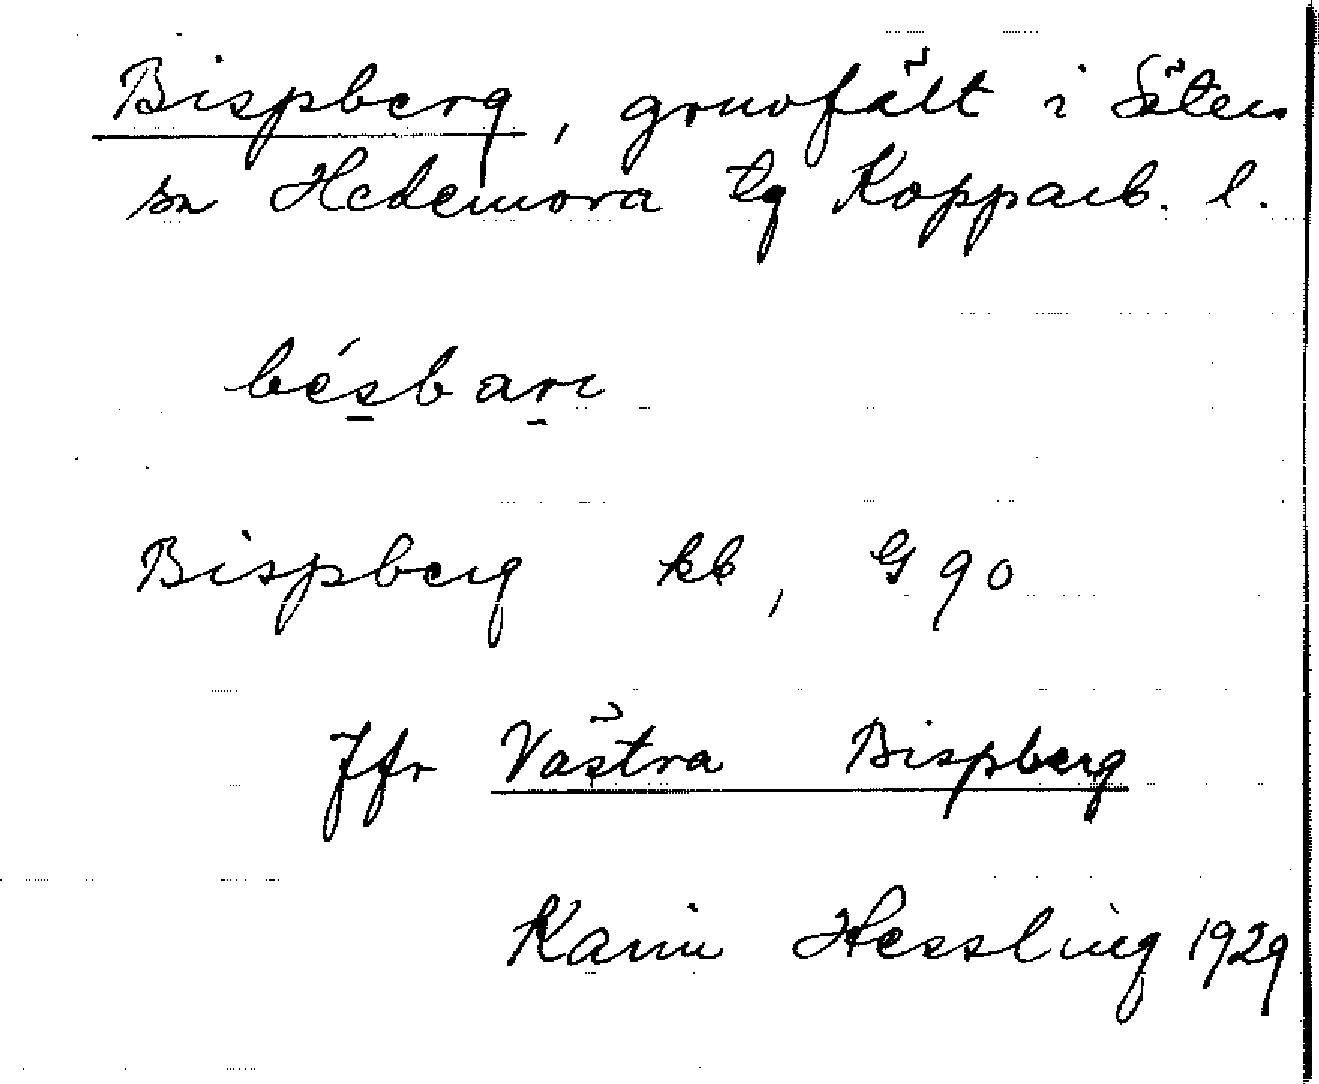 Bispberg, gruvfält i Säters
sn Hedemora tg Kopparb. l.
bésbari
Bispberg kb, G 90
Jfr Västra Bispberg
Karin Hessling 1929